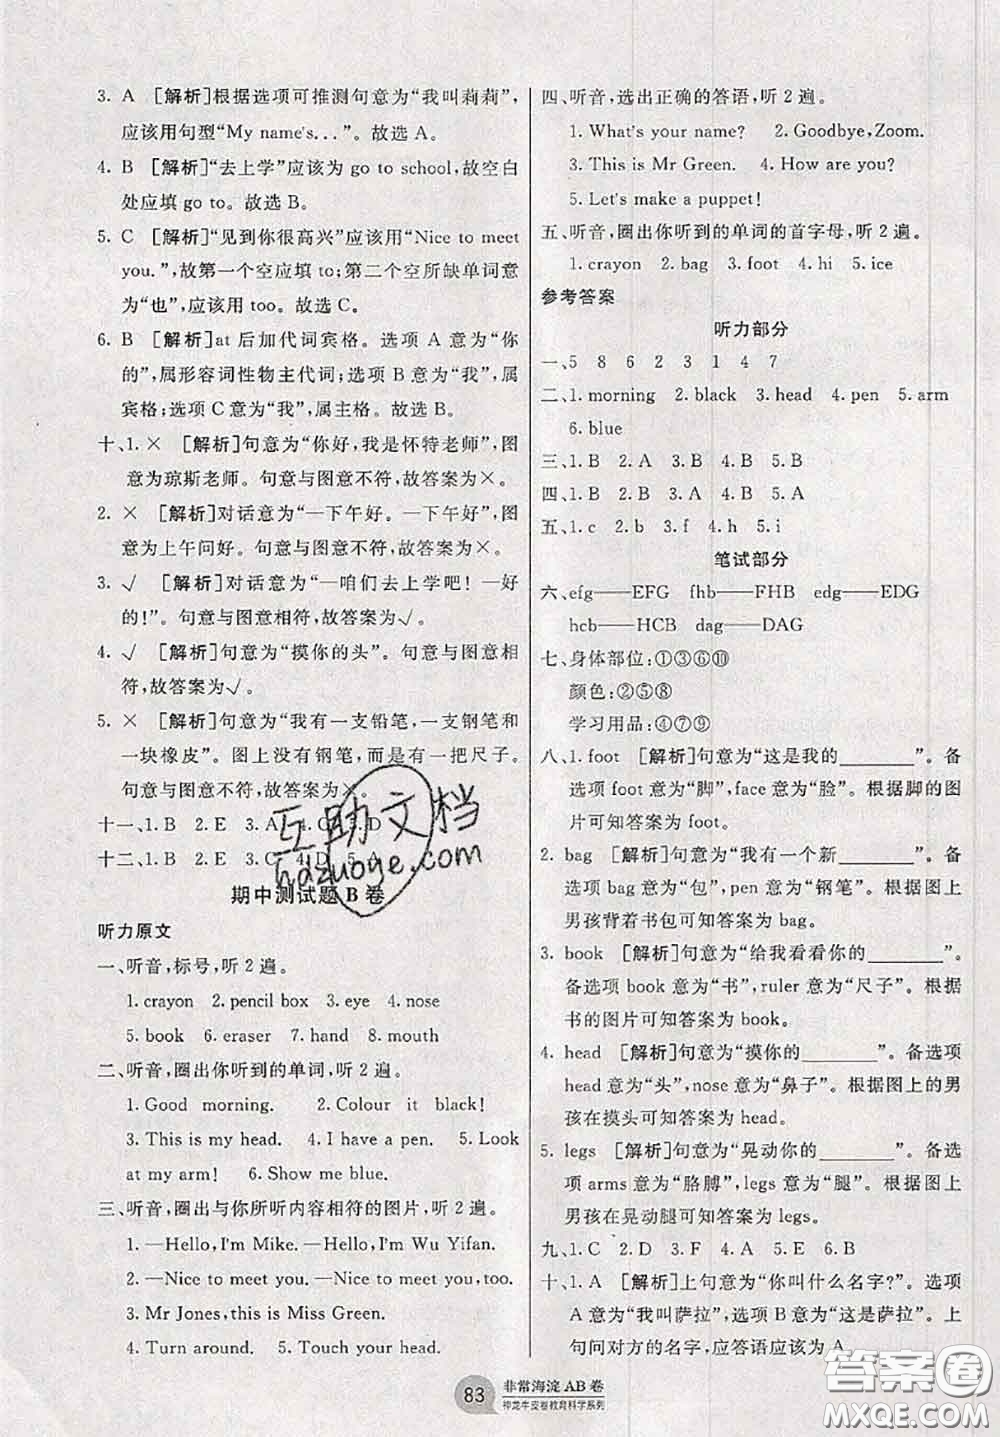 3. A [解析]根据选项可推测句意为“我叫莉莉”,
应该用句型“My name's...”。故选 A。
4. B [解析]“去上学”应该为 go to school,故空白
处应填 go to。故选 B。
5. C [解析]“见到你很高兴”应该用“Nice to meet
you.”,故第一个空应填 to;第二个空所缺单词意
为“也”,应该用 too。故选 C。
6. B [解析]at 后加代词宾格。选项 A 意为“你
的”,属形容词性物主代词;选项 B 意为“我”,属
宾格;选项 C 意为“我”,属主格。故选 B。
十、1. × [解析]句意为“你好,我是怀特老师”,图
意为琼斯老师。句意与图意不符,故答案为×。
2. × [解析]对话意为“—下午好。—下午好”,
图意为上午问好。句意与图意不符,故答案为×。
3. √ [解析]对话意为“—咱们去上学吧! —好
的!”。句意与图意相符,故答案为√。
4. √ [解析]句意为“摸你的头”。句意与图意相
符,故答案为√。
5. × [解析]句意为“我有一支铅笔,一支钢笔和
一块橡皮”。图上没有钢笔,而是有一把尺子。
句意与图意不符,故答案为×。
十一、1. B 2. E 3. A 4. C 5. D
十二、1. B 2. E 3. C 4. D 5. A
期中测试题 B 卷
听力原文
一、听音,标号,听 2 遍。
1. crayon 2. pencil box 3. eye 4. nose
5. book 6. eraser 7. hand 8. mouth
二、听音,圈出你听到的单词,听 2 遍。
1. Good morning. 2. Colour it black!
3. This is my head. 4. I have a pen. 5. Look
at my arm! 6. Show me blue.
三、听音,圈出与你所听内容相符的图片,听 2 遍。
1. —Hello,I'm Mike. —Hello,I'm Wu Yifan.
2. —Nice to meet you. —Nice to meet you,too.
3. Mr Jones,this is Miss Green.
4. Turn around. 5. Touch your head.
四、听音,选出正确的答语,听 2 遍。
1. What's your name? 2. Goodbye,Zoom.
3. This is Mr Green. 4. How are you?
5. Let's make a puppet!
五、听音,圈出你听到的单词的首字母,听 2 遍。
1. crayon 2. bag 3. foot 4. hi 5. ice
参考答案
听力部分
一、5 8 6 2 3 1 4 7
二、1. morning 2. black 3. head 4. pen 5. arm
6. blue
三、1. B 2. A 3. B 4. B 5. B
四、1. B 2. B 3. A 4. B 5. A
五、1. c 2. b 3. f 4. h 5. i
笔试部分
六、efg——EFG fhb——FHB edg——EDG
hcb——HCB dag——DAG
七、身体部位:①③⑥⑩
颜色:②⑤⑧
学习用品:④⑦⑨
八、1. foot [解析]句意为“这是我的________”。备
选项 foot 意为“脚”,face 意为“脸”。根据脚的图
片可知答案为 foot。
2. bag [解析]句意为“我有一个新________”。备
选项 bag 意为“包”,pen 意为“钢笔”。根据图上
男孩背着书包可知答案为 bag。
3. book [解析]句意为“给我看看你的________”。
备选项 book 意为“书”,ruler 意为“尺子”。根据
书的图片可知答案为 book。
4. head [解析]句意为“摸你的________”。备选项
head 意为“头”,nose 意为“鼻子”。根据图上的男
孩在摸头可知答案为 head。
5. legs [解析]句意为“晃动你的________”。备选
项 arms 意为“胳膊”,legs 意为“腿”。根据图上的
男孩在晃动腿可知答案为 legs。
九、1. C 2. D 3. F 4. A 5. E 6. B
十、1. A [解析]上句意为“你叫什么名字?”。选项
A 意为“我叫萨拉”,选项 B 意为“这是萨拉”。上
句问对方的名字,应答语应该为 A。
83 非常海淀 AB 卷
神龙牛皮卷教育科学系列
互助文档
hdzuoye.com
答案圈
MXQE.COM